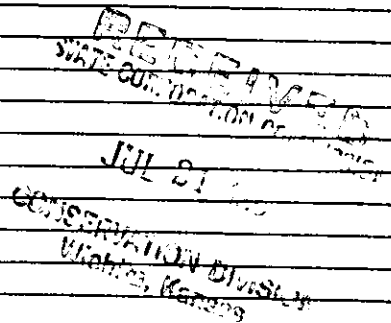 RECEIVED
STATE CORPORATION COMMISSION
JUL 21
CONSERVATION DIVISION
Wichita, Kansas